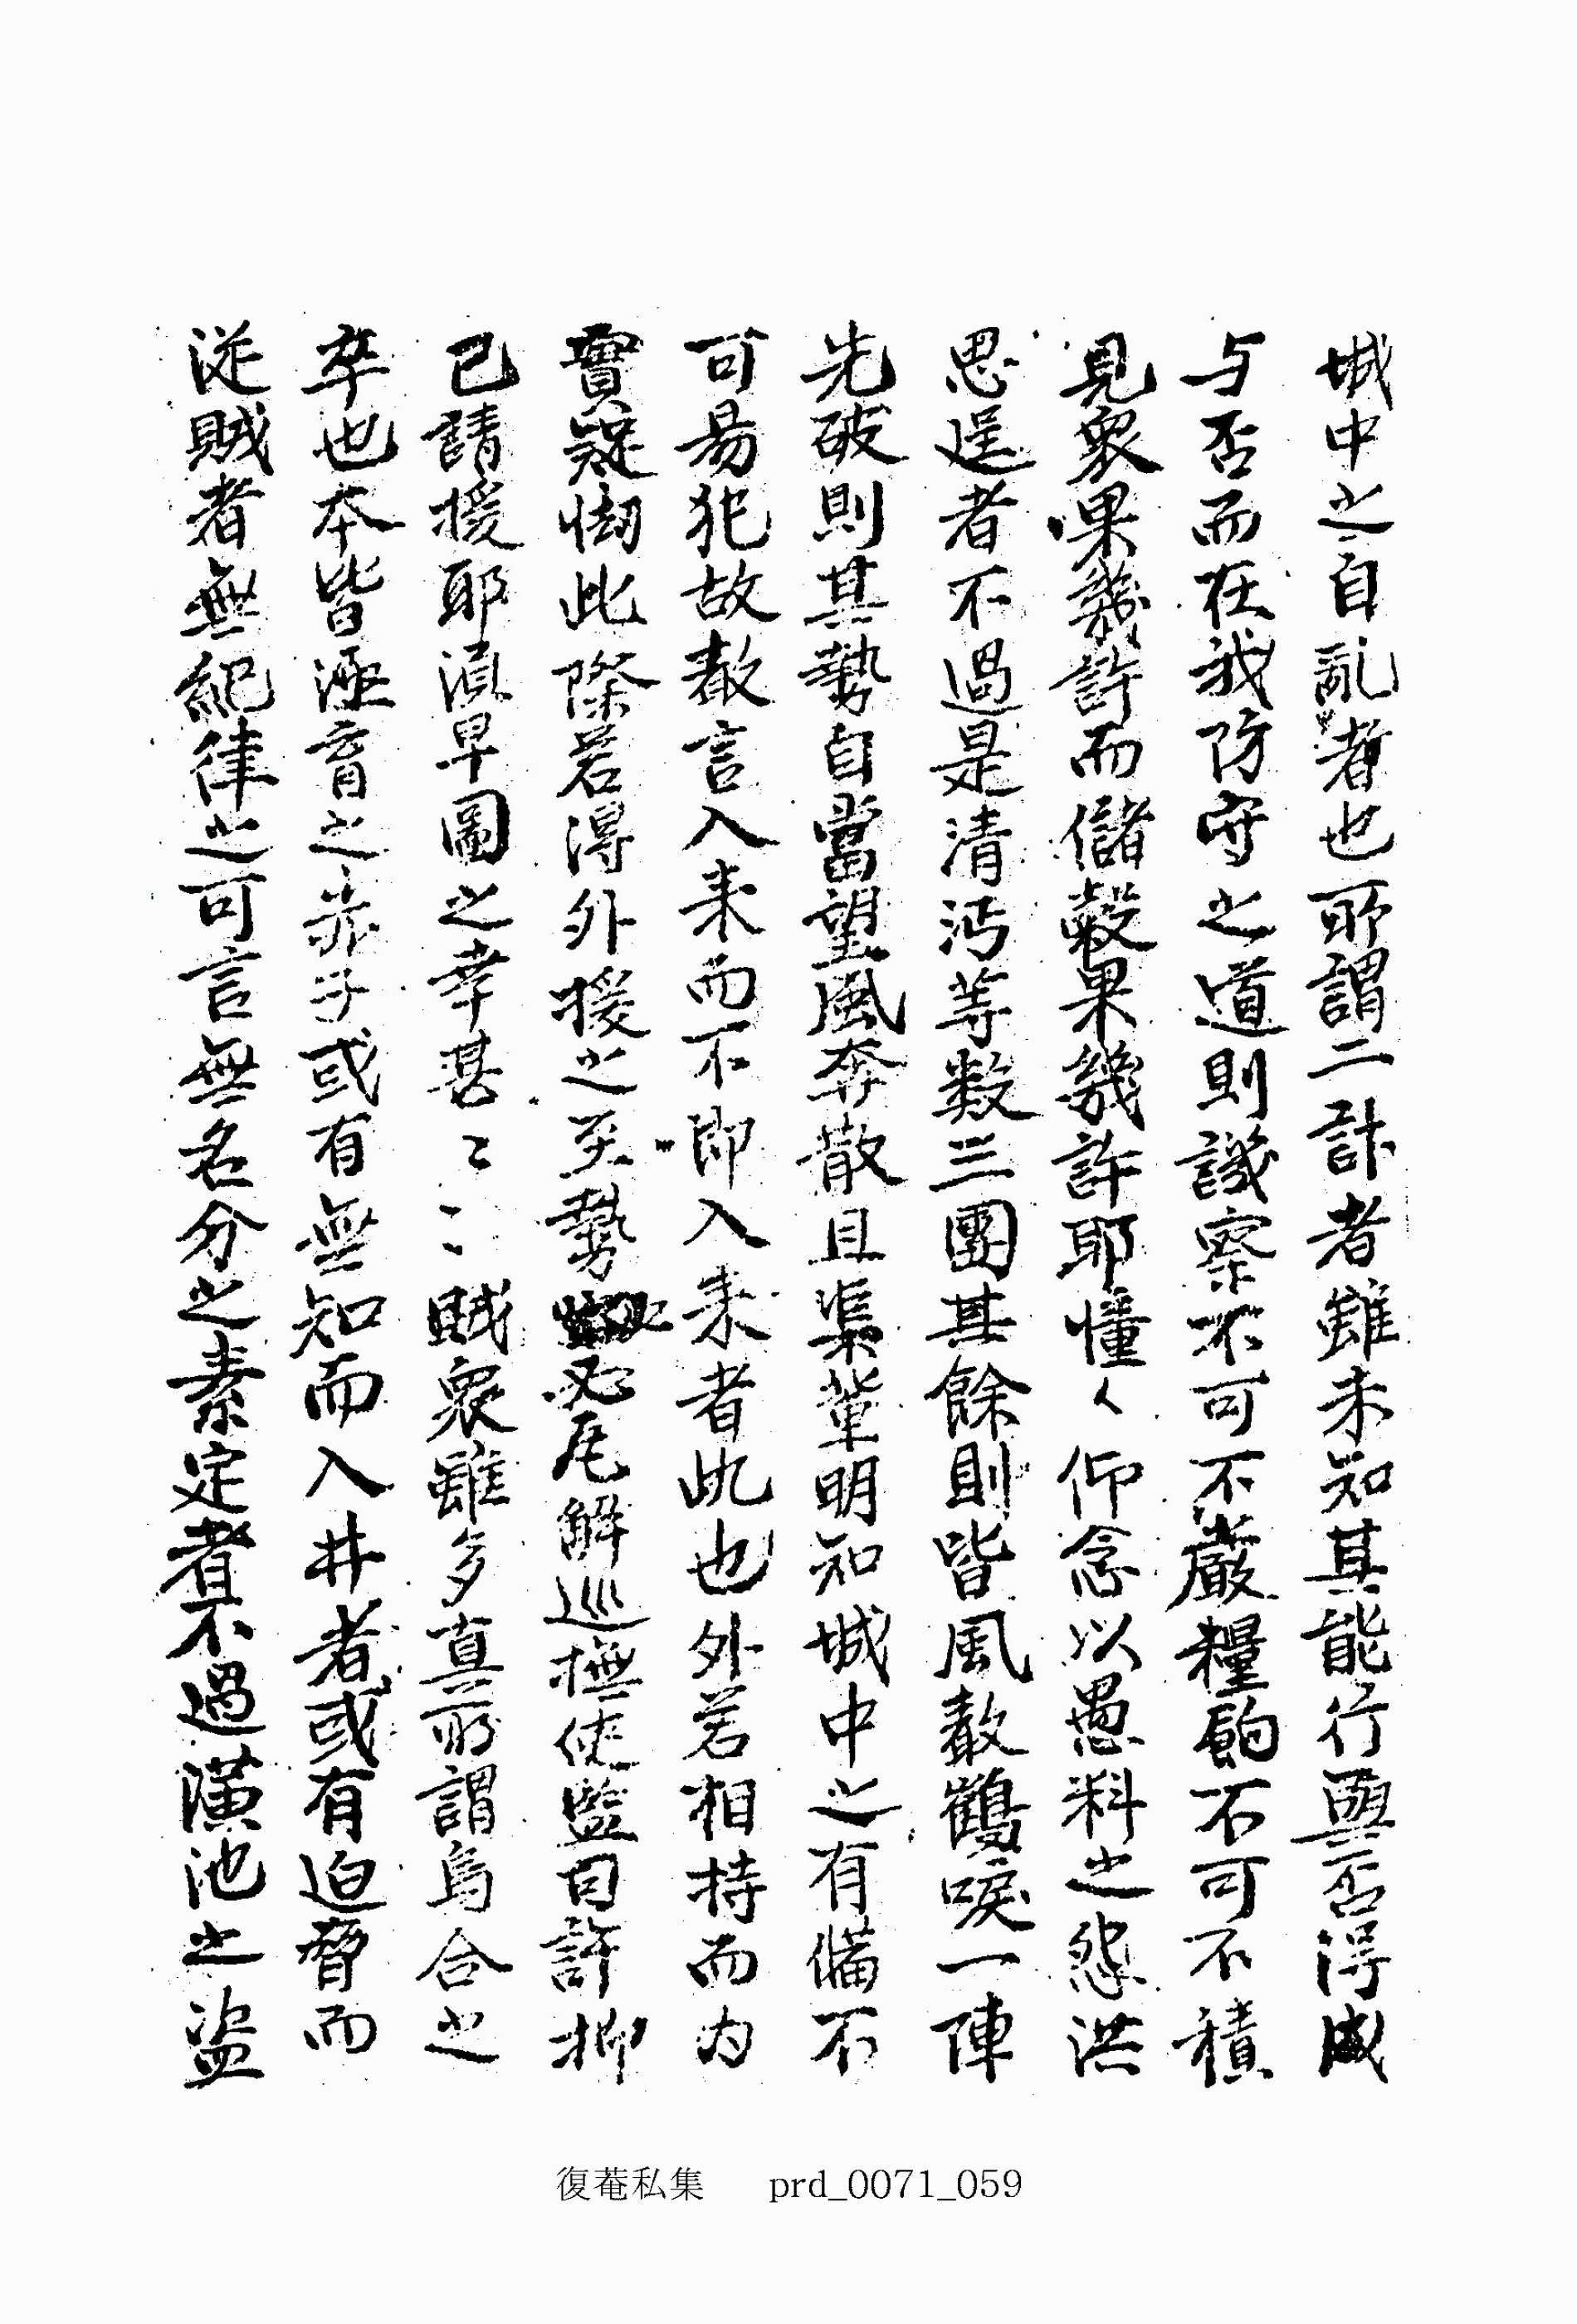 城中之自乱者也所謂二計者雖未知其能行與否得成
与否而在我防守之道則譏察不可不嚴糧餉不可不積
見衆果幾許而儲穀果幾許耶憧〻仰念以愚料之怨洪
思逞者不過是清沔等数三團其餘則皆風聲鶴唳一陣
先破則其勢自當望風奔散且渠輩明知城中之有備不
可易犯故聲言入来而不即入来者此也外若相持而内
實疑㥘此際若得外援之至勢必瓦解巡撫使監司許抑
已請援耶湏早圖之幸甚〻〻賊衆雖多真所謂烏合之
卒也本皆涵育之赤子或有無知而入井者或有迫脅而
従賊者無紀律之可言無名分之素定者不過潢池之盗
復菴私集 prd_0071_059